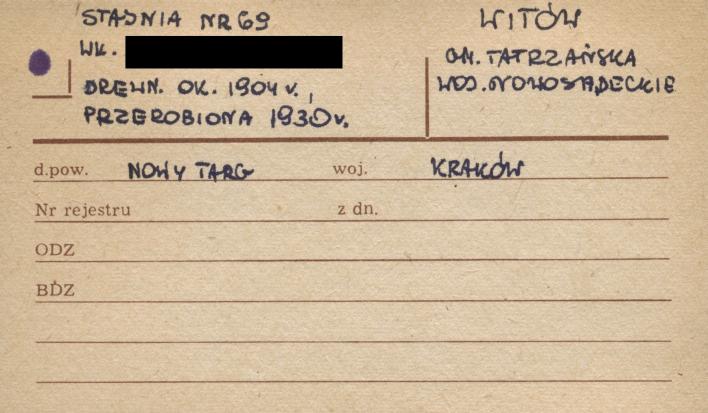 STAJNIA NR 69
WŁ.
DREWN. OK. 1904 r.,
PRZEROBIONA 1930 r.
WITÓW
GM. TATRZAŃSKA
WOJ. NOWOSĄDECKIE
d.pow. NOWY TARG woj. KRAKÓW
Nr rejestru z dn.
ODZ
BDZ